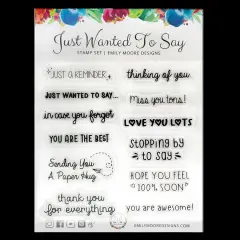 Just Wanted To Say
STAMP SET | EMILY MOORE DESIGNS
JUST A REMINDER
thinking of you
JUST WANTED TO SAY...
miss you tons!
in case you forget
LOVE YOU LOTS
YOU ARE THE BEST
Stopping by
to say
Sending You
A Paper Hug
HOPE YOU FEEL
100% SOON
thank you
for everything
you are awesome!
EMILYMOOREDESIGNS.COM